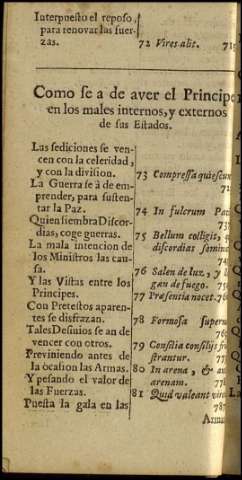 Interpuesto el reposo,
para renovar las fuer-
zas. 72 Vires alit. 715
Como se a de aver el Principe
en los males internos, y externos
de sus Estados.
Las sediciones se ven-
cen con la celeridad,
y con la division. 73 Compressa quiescun
La Guerra se à de em-
prender, para susten-
tar la Paz. 74 In fulcrum Pac
Quien siembra Discor-
dias, coge guerras. 75 Bellum colligit, q
La mala intencion de discordias semina
los Ministros las cau-
sa. 76 Salen de luz, y l
Y las Vistas entre los gan de fuego.
Principes. 77 Præsentia nocet. 76
Con Pretestos aparen-
tes se disfrazan. 78 Formosa supern
Tales Desinios se an de
vencer con otros. 79 Consilia consilijs fr
Previniendo antes de strantur.
la ocasion las Armas. 80 In arena, & an
Y pesando el valor de arenam.
las Fuerzas. 81 Quid valeant viri
Puesta la gala en las
Arma